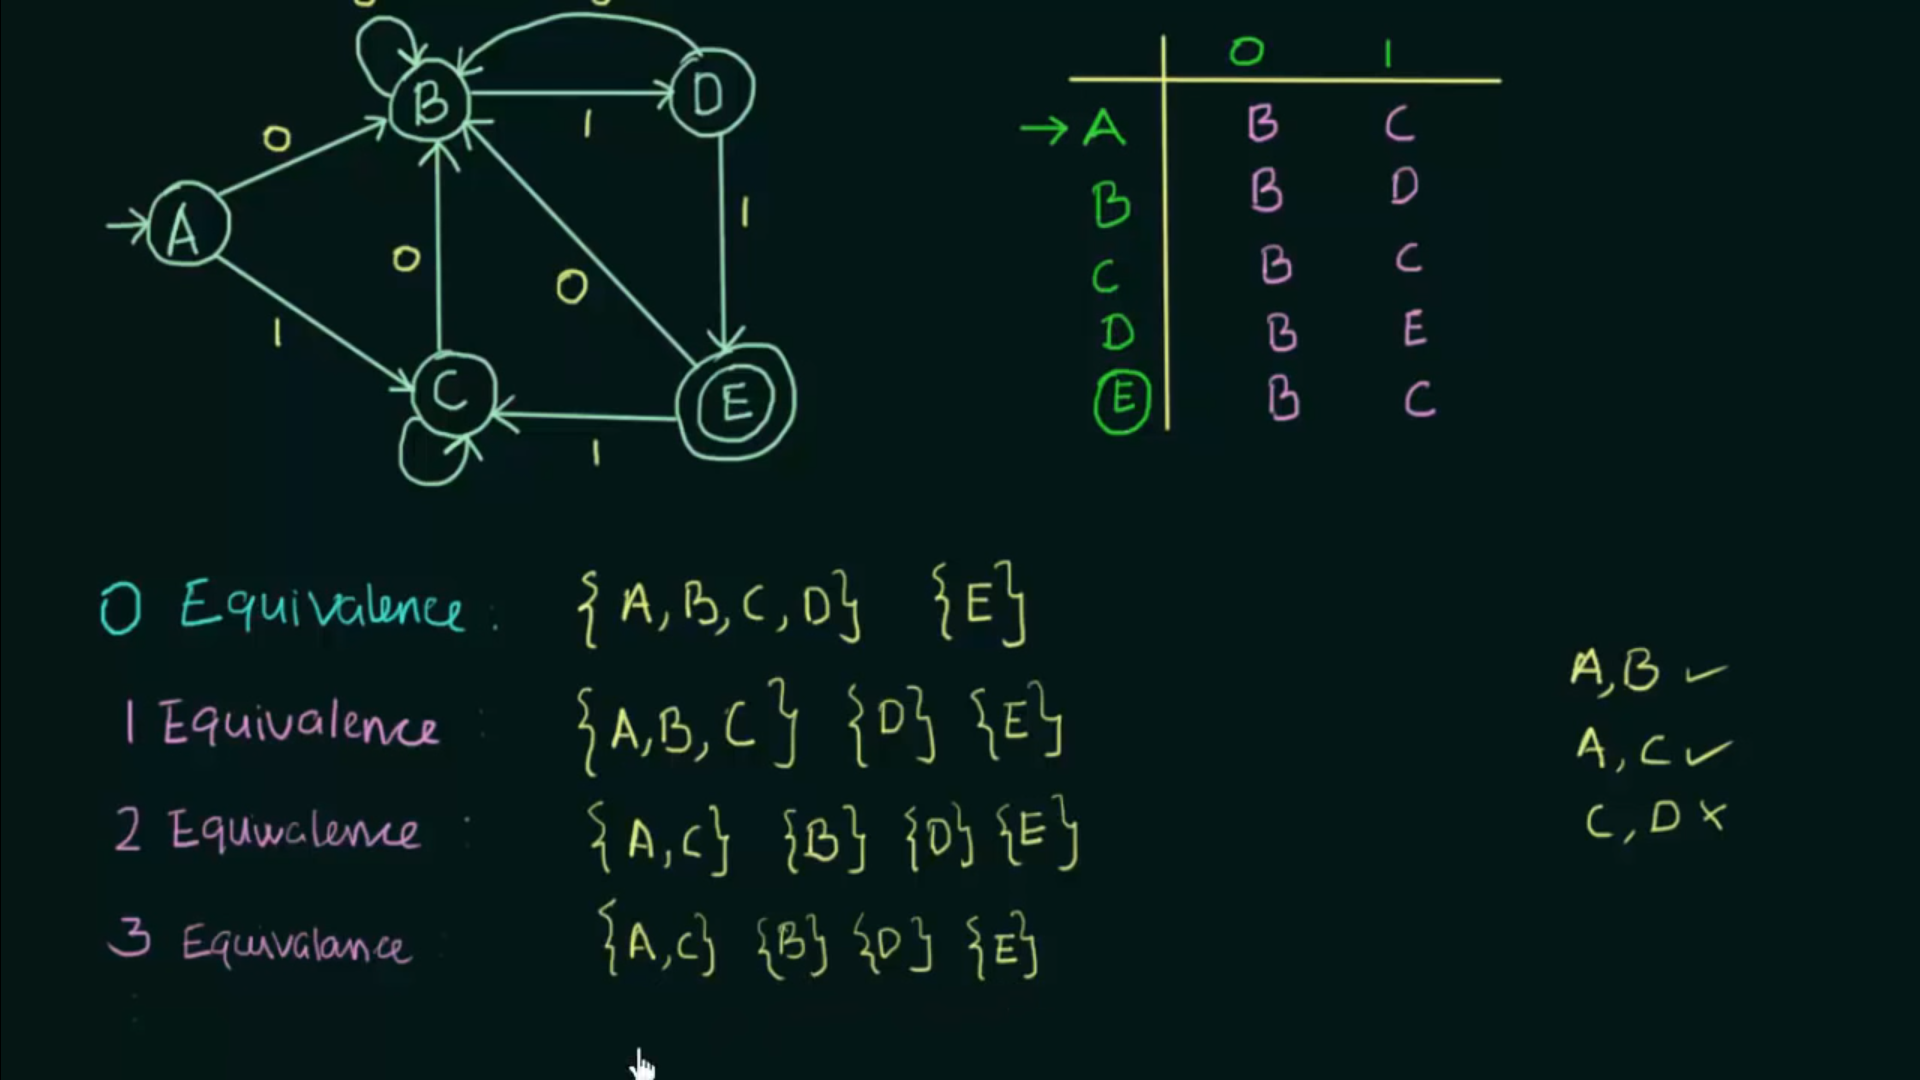 B
D
0
1
1
A
0
0
1
C
E
1
0 1
→ A B C
B B D
C B C
D B E
E B C
0 Equivalence : {A, B, C, D} {E}
1 Equivalence : {A, B, C} {D} {E}
2 Equivalence : {A, C} {B} {D} {E}
3 Equivalance {A, C} {B} {D} {E}
A, B ✓
A, C ✓
C, D ×